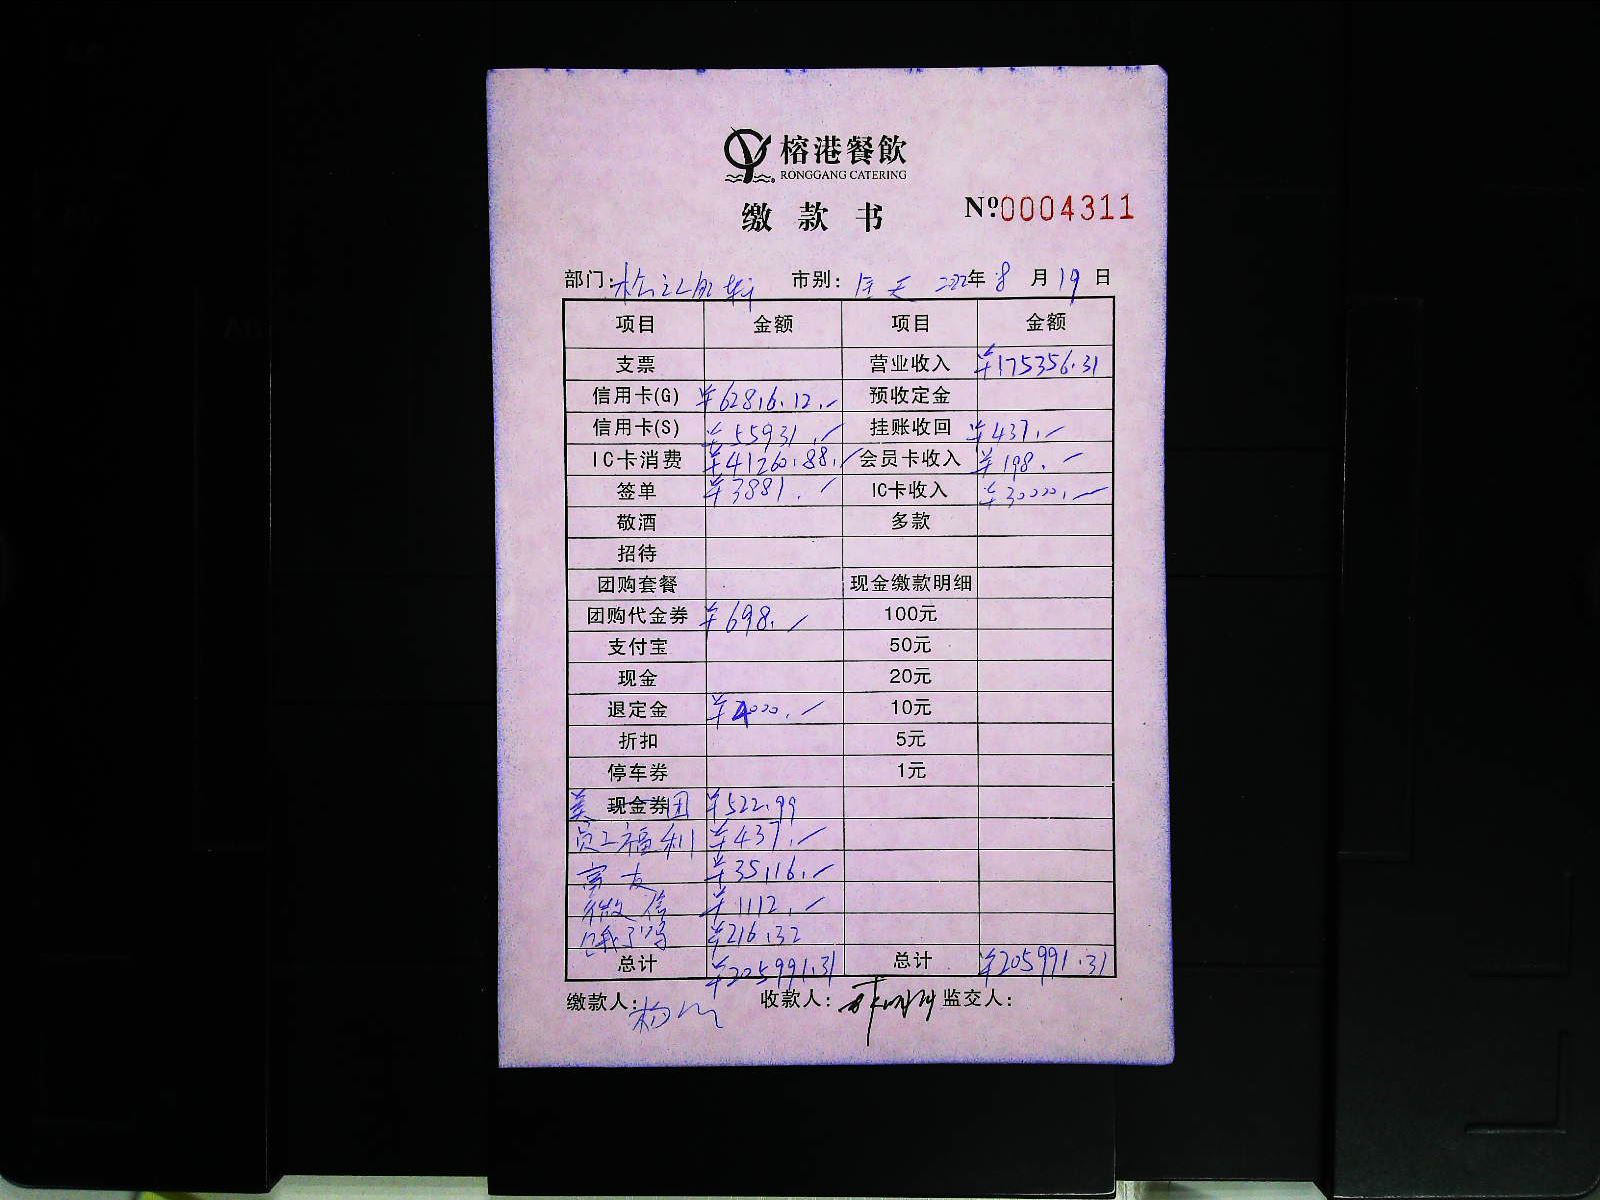 榕港餐飲
RONGGANG CATERING
缴 款 书
№0004311
部门: 市别: 全天 2022年 8 月 19 日
项目 金额 项目 金额
支票 营业收入 ¥175356.31
信用卡(G) ¥62816.12.- 预收定金
信用卡(S) ¥55931.- 挂账收回 ¥437.-
IC卡消费 ¥41260.88.- 会员卡收入 ¥198.-
签单 ¥3881.- IC卡收入 ¥30000.-
敬酒 多款
招待
团购套餐 现金缴款明细
团购代金券 ¥698.- 100元
支付宝 50元
现金 20元
退定金 ¥4000.- 10元
折扣 5元
停车券 1元
美 现金券团 ¥522.99
员工福利 ¥437.-
¥35116.-
微信 ¥1112.-
饿了吗 ¥216.32
总计 ¥205991.31 总计 ¥205991.31
缴款人: 收款人: 监交人: